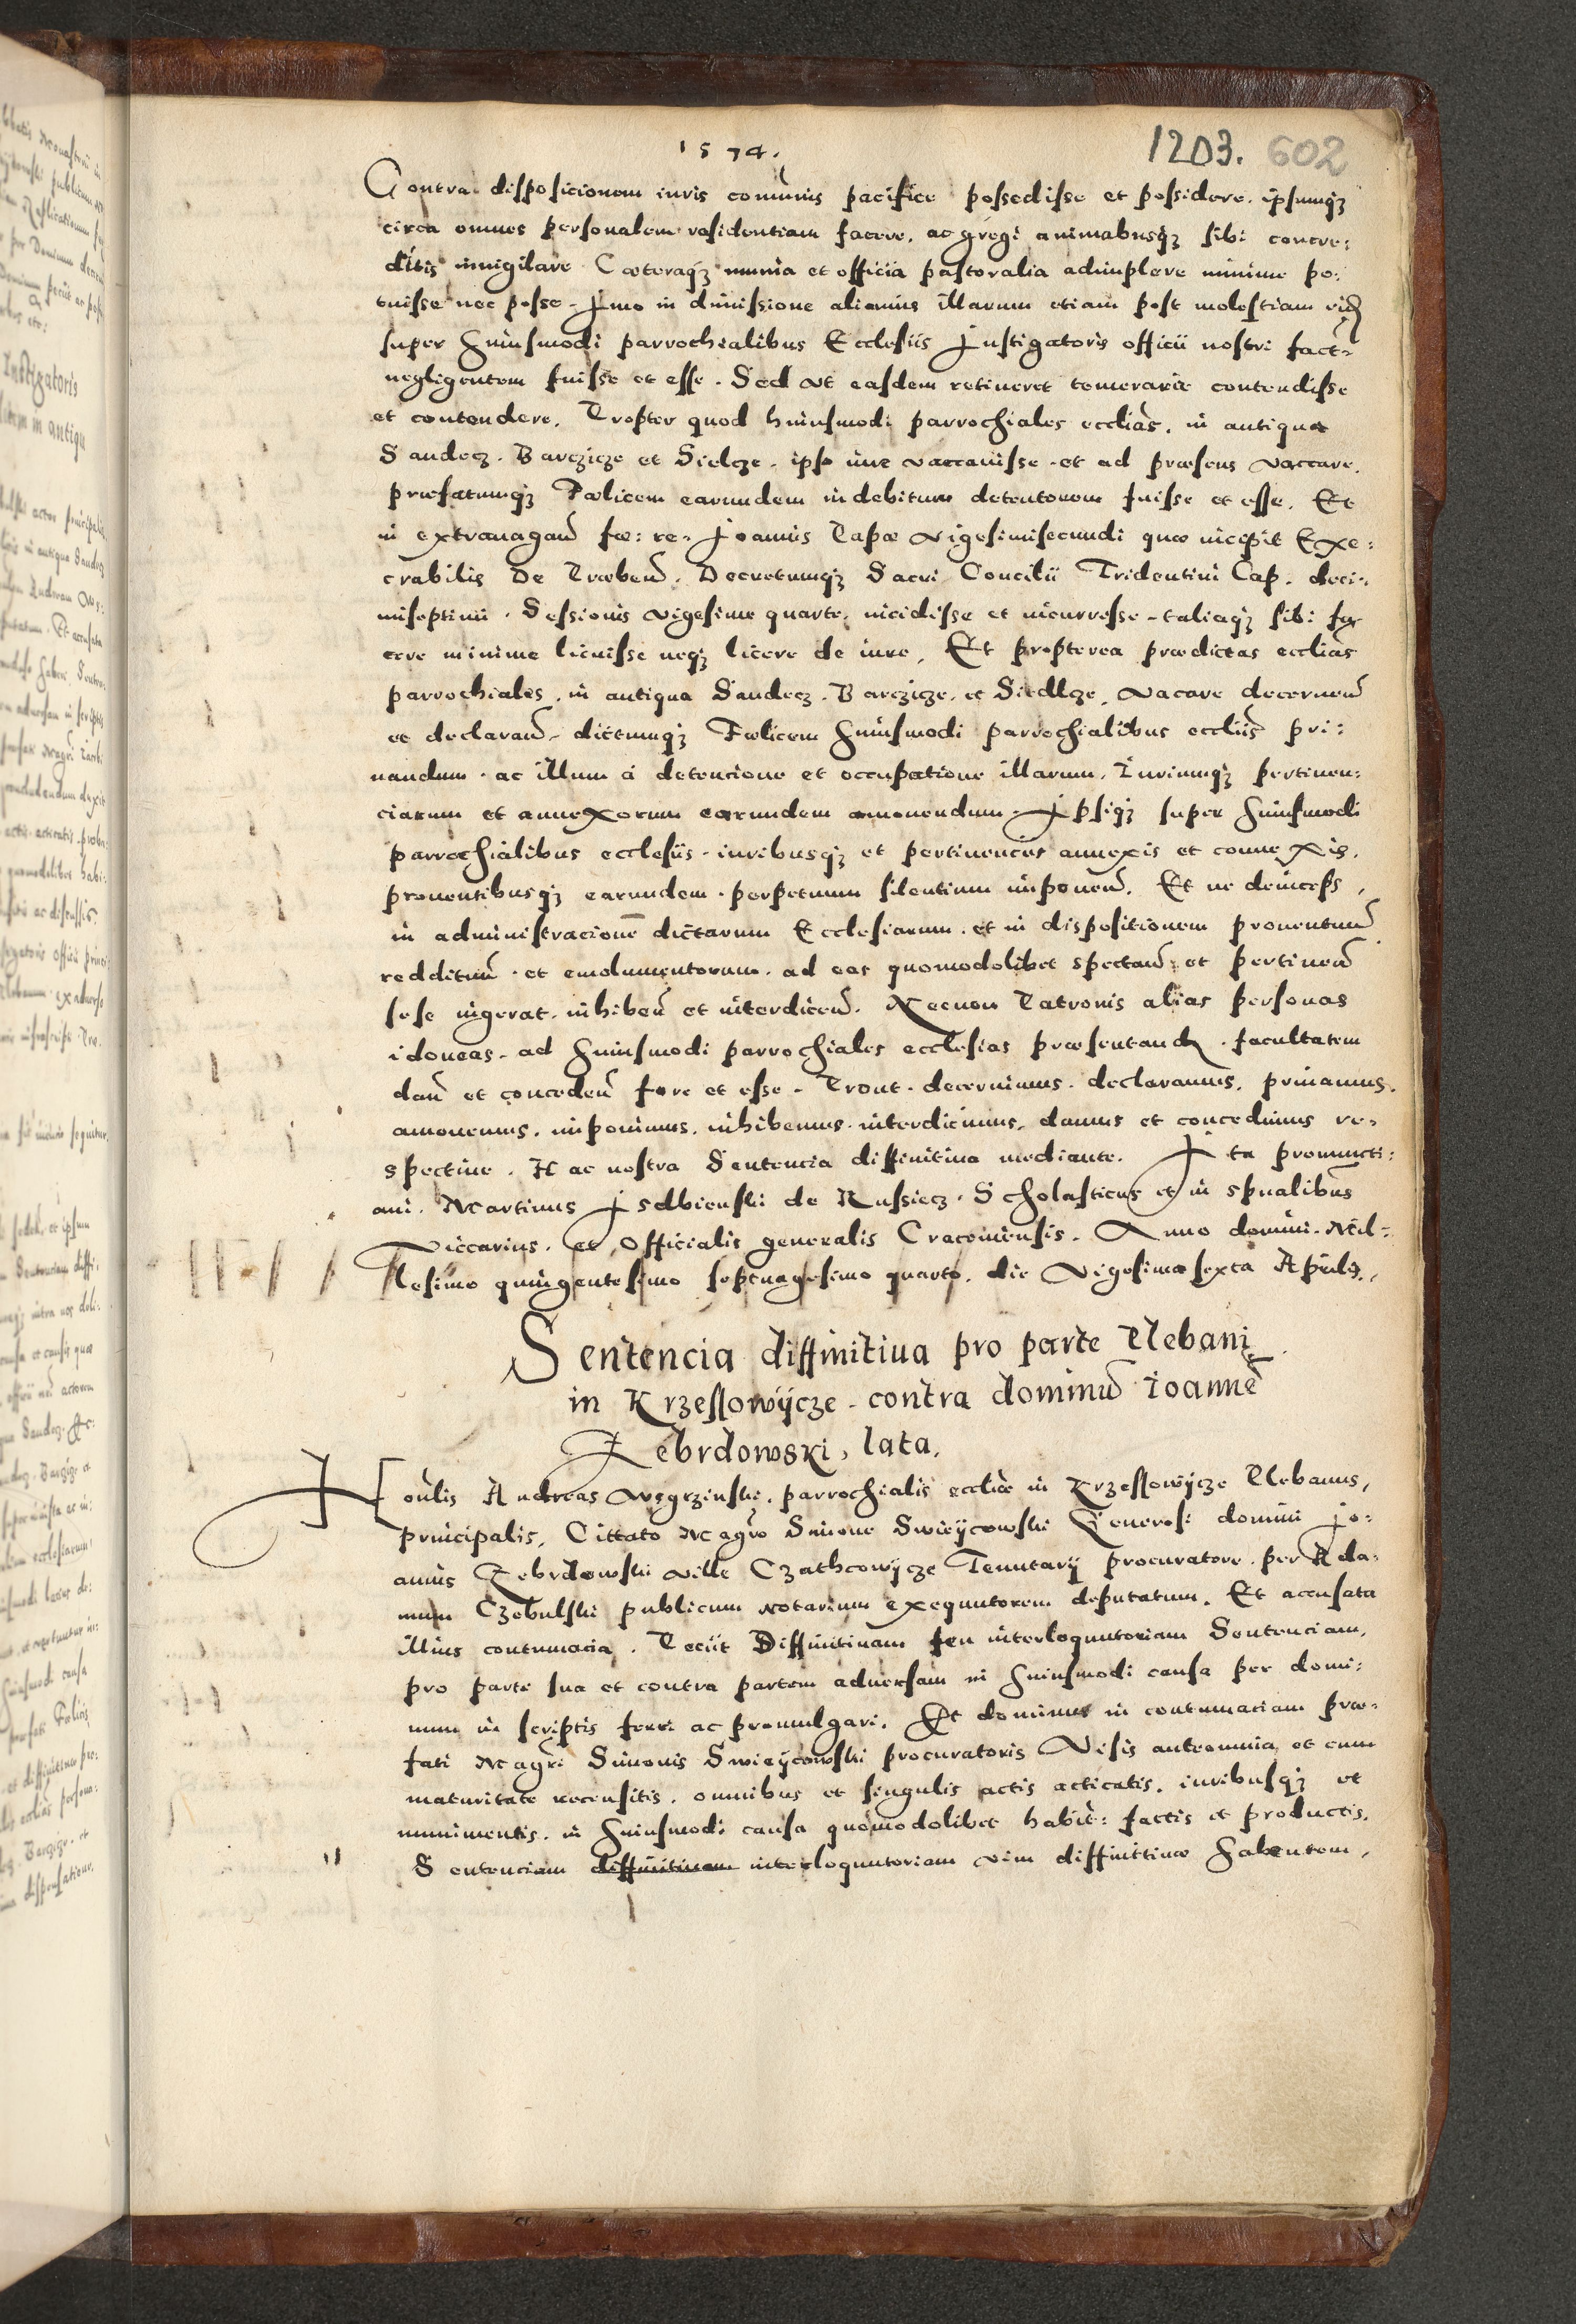 1574.
1203. 602
Contra disposicionem iuris com̃unis pacifice possedisse et possidere. ipsumqȝ
circa omnes personalem residentiam facere, ac gregi animabusqȝ sibi concre:
ditis inuigilare Cæteraqȝ munia et officia pastoralia adimplere minime po:
tuisse nec posse. Imo in dimissione alicuius illarum etiam post molestiam
super huiusmodi parrochialibus Ecclesiis Instigatoris officii nostri fact
negligentem fuisse et esse. Sed ut easdem retineret temerarie contendisse
et contendere, Propter quod huiusmodi parrochiales ecclias. in antiqua
Sandecz. Barczicze et Sielcze. ipso iure vaccauisse. et ad præsens vaccare.
præfatumqȝ Fœlicem earundem indebitum detentorem fuisse et esse. Et
in extrauagan̄ fœ: re. Joannis Papæ vigesimisecundi quæ incipit Exe:
crabilis De Præben̄. Decretumqȝ Sacri Concilii Tridentini Cap. deci:
miseptimi. Sessionis vigesime quarte, incidisse et incurresse. taliaqȝ sibi fa
cere minime licuisse neqȝ licere de iure, Et propterea prædictas ecclias
parrochiales, in antiqua Sandecz. Barczicze, et Siedlcze, vacare decernen̄
et declaran̄, dictumqȝ Fœlicem huiusmodi parrochialibus eccliis pri:
uandum. ac illum á detencione et occupatione illarum, Iuriumqȝ pertinen:
ciarum et annexorum earundem amouendum. Ipsiqȝ super huiusmodi
parrochialibus ecclesiis. iuribusqȝ et pertinenciis annexis et connexis,
prouentibusqȝ earundem. perpetuum silentium imponen̄. Et ne deinceps,
in administracione̅ dictarum Ecclesiarum. et in dispositionem prouentuū
reddituū. et emolumentorum. ad eas quomodolibet spectan̄ et pertinen̄
sese ingerat. inhiben̄ et interdicen̄. Necnon Patronis alias personas
idoneas. ad huiusmodi parrochiales ecclesias præsentand. facultatem
dan̄ et conceden̄ fore et esse. Prout. decernimus. declaramus, priuamus.
amouemus. imponimus. inhibemus. interdicimus, damus et concedimus re:
spectiue. Hac nostra Sentencia diffinitiua mediante. Ita pronuncti:
aui. Martinus Isdbienski de Russiecz. Scholasticus et in spualibus
Viccarius. et Officialis generalis Cracouiensis. Anno domini. Mil:
lesimo quingentesimo septuagesimo quarto, die Vigesimasexta Aprilis.
Sentencia diffinitiua pro parte Plebani
in Krzessowijcze. contra dominū Ioannē
Zebrdowski, lata.
Honlis Andreas Wegrzinski. parrochialis eccliæ in Krzessowijcze Plebanus,
principalis, Cittato Magr̄o Simone Swieijcowski Generosi domini Jo:
annis Zebrdowski ville Czathcowijcze Tenutarij procuratore. per Ada:
mum Czebulski publicum notarium exequutorem deputatum. Et accusata
illius contumacia. Peciit Diffinitiuam seu interloquutoriam Sentenciam,
pro parte sua et contra partem aduersam in huiusmodi causa per domi:
num in scriptis ferri ac promulgari. Et dominus in contumaciam præ:
fati Magr̄i Simonis Swieijcowski procuratoris Visis anteomnia et cum
maturitate recensitis. omnibus et singulis actis acticatis. iuribusqȝ et
munimentis. in huiusmodi causa quomodolibet habit: factis et productis.
Sentenciam diffinitiuam interloquutoriam vim diffinitiuæ habentem,